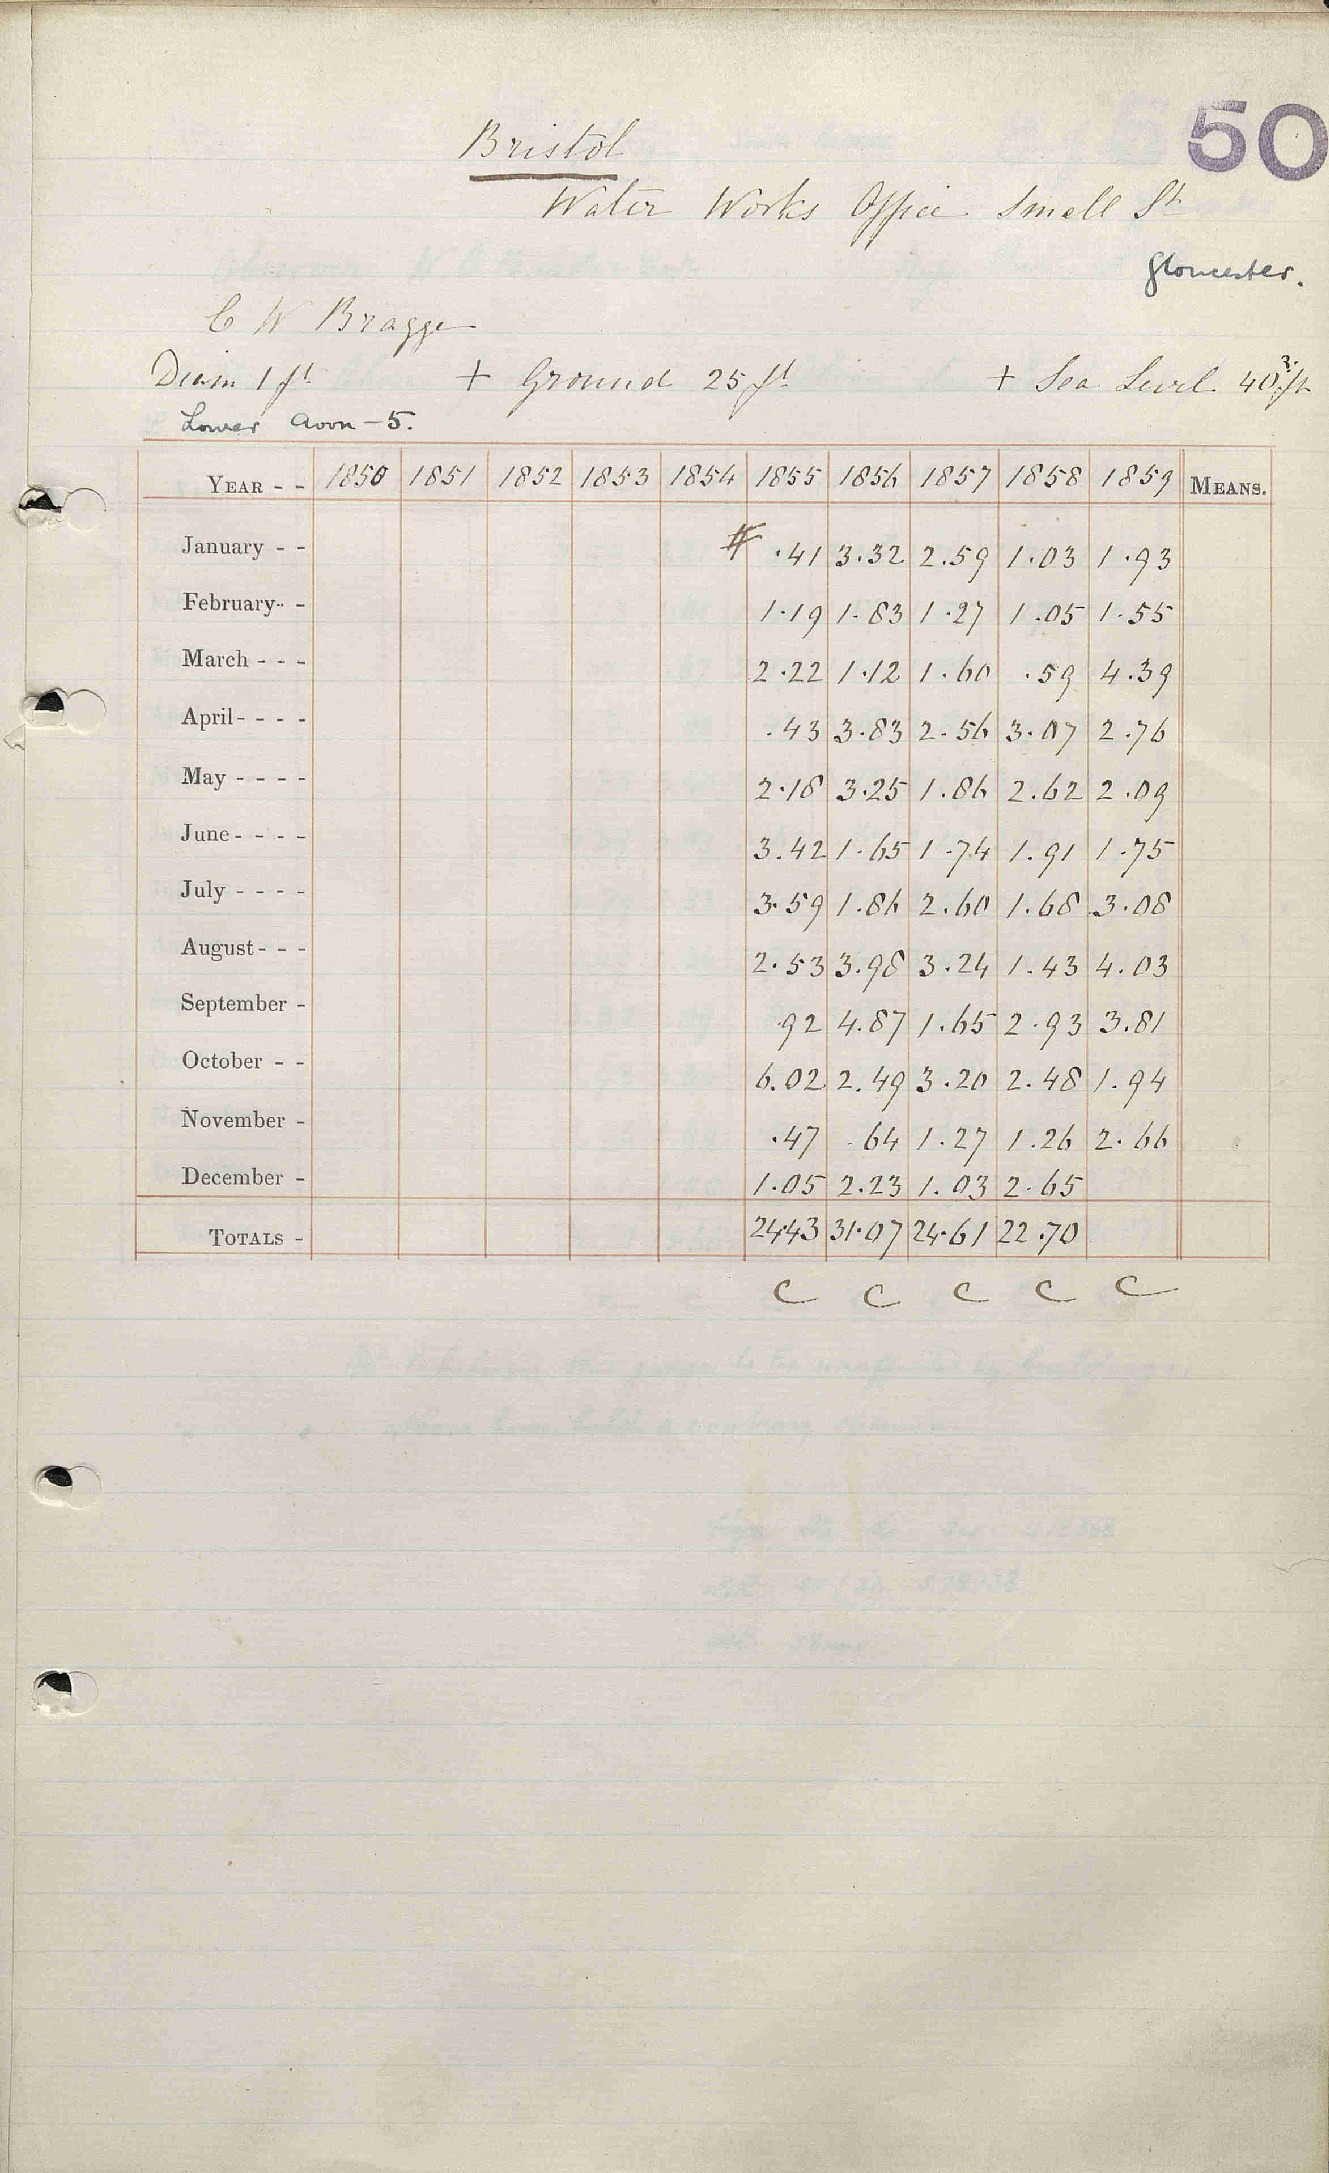 50
Bristol
Water Works Office Small St
Gloucester.
C W Bragge
Diam 1 ft + Ground 25 ft + Sea Level 40 3. ft
Lower Avon - 5.
YEAR - - 1850 1851 1852 1853 1854 1855 1856 1857 1858 1859 MEANS.
January - - # .41 3.32 2.59 1.03 1.93
February - - 1.19 1.83 1.27 1.05 1.55
March - - - 2.22 1.12 1.60 .59 4.39
April - - - - .43 3.83 2.56 3.07 2.76
May - - - - 2.18 3.25 1.86 2.62 2.09
June - - - - 3.42 1.65 1.74 1.91 1.75
July - - - - 3.59 1.86 2.60 1.68 3.08
August - - - 2.53 3.98 3.24 1.43 4.03
September - .92 4.87 1.65 2.93 3.81
October - - 6.02 2.49 3.20 2.48 1.94
November - .47 .64 1.27 1.26 2.66
December - 1.05 2.23 1.03 2.65
TOTALS - 24.43 31.07 24.61 22.70
C C C C C